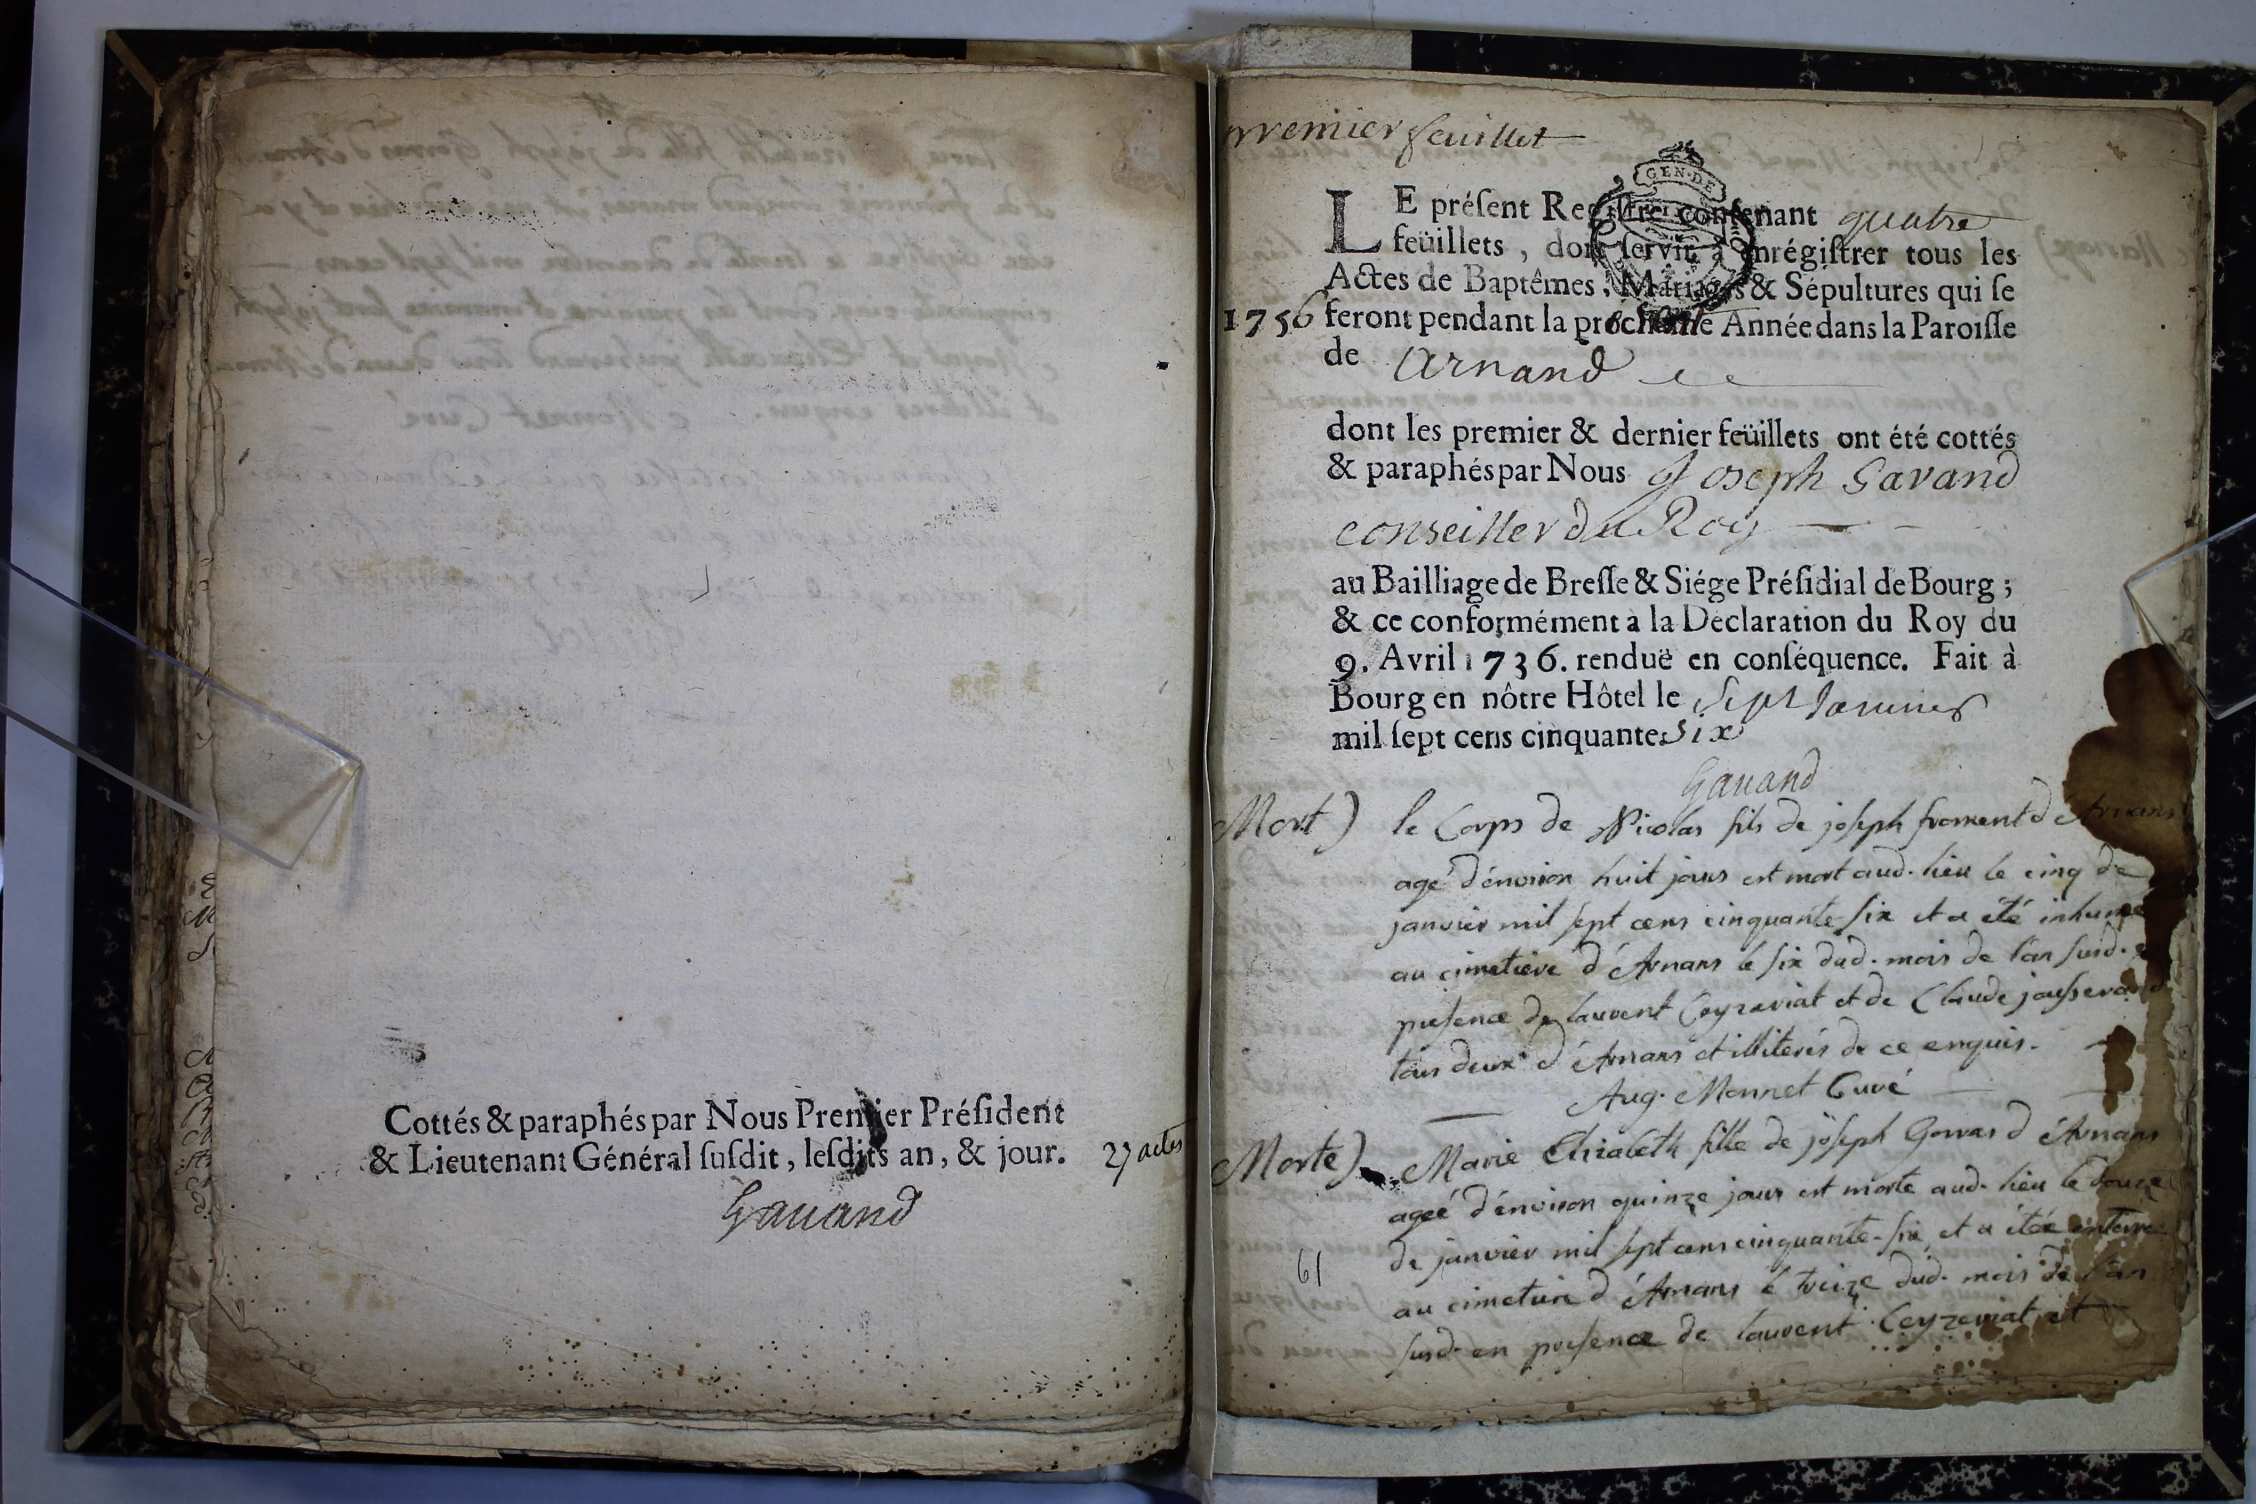 Cottés & paraphés par Nous Premier Préſident
& Lieutenant Général ſuſdit, leſdits an, & jour.
27 actes
Gauand
premier feuillet
GEN·DE
LE préſent Regiſtre contenant quatre
feüillets, dont ſervir à enrégiſtrer tous les
Actes de Baptêmes, Mariages & Sépultures qui ſe
1756 feront pendant la prochaine Année dans la Paroiſſe
de Arnand
dont les premier & dernier feüillets ont été cottés
& paraphés par Nous Joseph Gavand
conseiller du Roy
au Bailliage de Breſſe & Siége Préſidial de Bourg ;
& ce conformément à la Déclaration du Roy du
9. Avril 1736. renduë en conſéquence. Fait à
Bourg en nôtre Hôtel le Sept Januier
mil ſept cens cinquante Six
Gauand
Mort) le Corps de Nicolas fils de joseph froment d'Arnans
agé d'énviron huit jours est mort aud. lieu le cinq de
janvier mil sept cens cinquante-six et a été inhumé
au cimetiére d'Arnans le six dud. mois de l'an susd. e
presence de laurent Ceyzeriat et de Claude jousserand
tous deux d'Arnans et illiterés de ce enquis.
Aug. Monnet Curé
Morte) Marie Elizabeth fille de joseph d'Arnans
ageé d'énviron quinze jours est morte aud. lieu le douze
de janvier mil sept cens cinquante-six et a étée enterre
61
au cimetiere d'Arnans le treize dud. mois de l'an
susd. en presence de laurent Ceyzeriat et